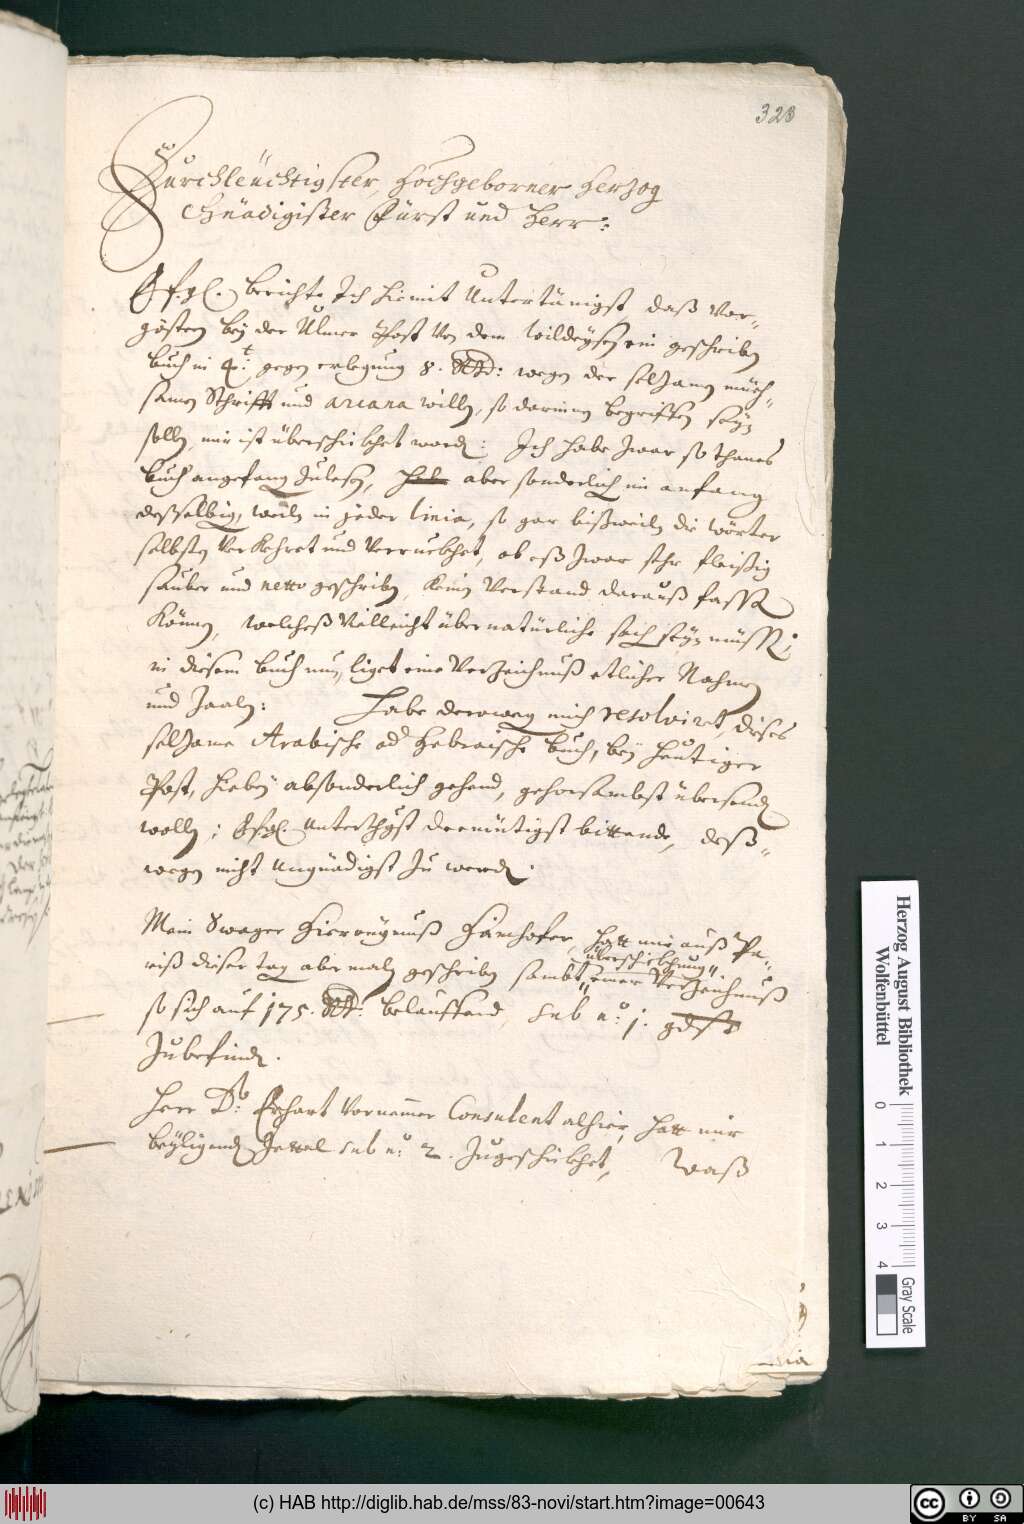 323
Durchleüchtigster, Hochgeborner Herzog
Gnädigister Fürst und Herr:
E. f. gl. berichte Ich hiemit Untertänigst, daß Vor-
gösten bey der Ulmer Post Von dem Wildeysen ein geschriben
buch in 4.t: gegen erlegung 8. Rthl: wegen der selzamen
samen Schrifft und arcana willen, so darinnen begriffen seyn
sollen, mir ist überschickhet worden: Ich habe zwar so thanes
buch angefangen zulesen, aber sonderlich im anfang
desselbigen, weiln in jeder linia, so gar bißweiln die wörter
selbsten Verkehret und Verruckhet, ob eß zwar sehr fleissig
sauber und netto geschriben, keinen Verstand darauß fassen
können, welcheß Villeicht übernatürliche sach seyn müssen;
in diesem buch nun, liget eine Verzeichnuß etlicher Nahmen
und Zaalen: Habe derowegen mich resolviret, dises
selzame Arabische od Hebraische buch, bey heutiger
Post, hiebey absonderlich gehend, gehorsambst übersenden
wollen; E. f. gl. Unterthgst demütigst bittende, deß-
wegen nicht Ungnädigst zu werden.
Mein Swager Hieronÿmuß Hainhofer, hatt mir auß Pa-
riß diser tag abermalen geschriben sambt einer Verzeichnuß
überschickhung
so sich auf 175. Rth: belauffend, sub n.o 1. gdst
Zubefinden.
Herr D.r: Erhart Vornemmer Consulent alhier, hatt mir
beyligenden Zettel sub n.o 2. Zugeschickhet, Waß
Herzog August Bibliothek
Wolfenbüttel
0 1 2 3 4
Gray Scale
(c) HAB http://diglib.hab.de/mss/83-novi/start.htm?image=00643
cc BY SA